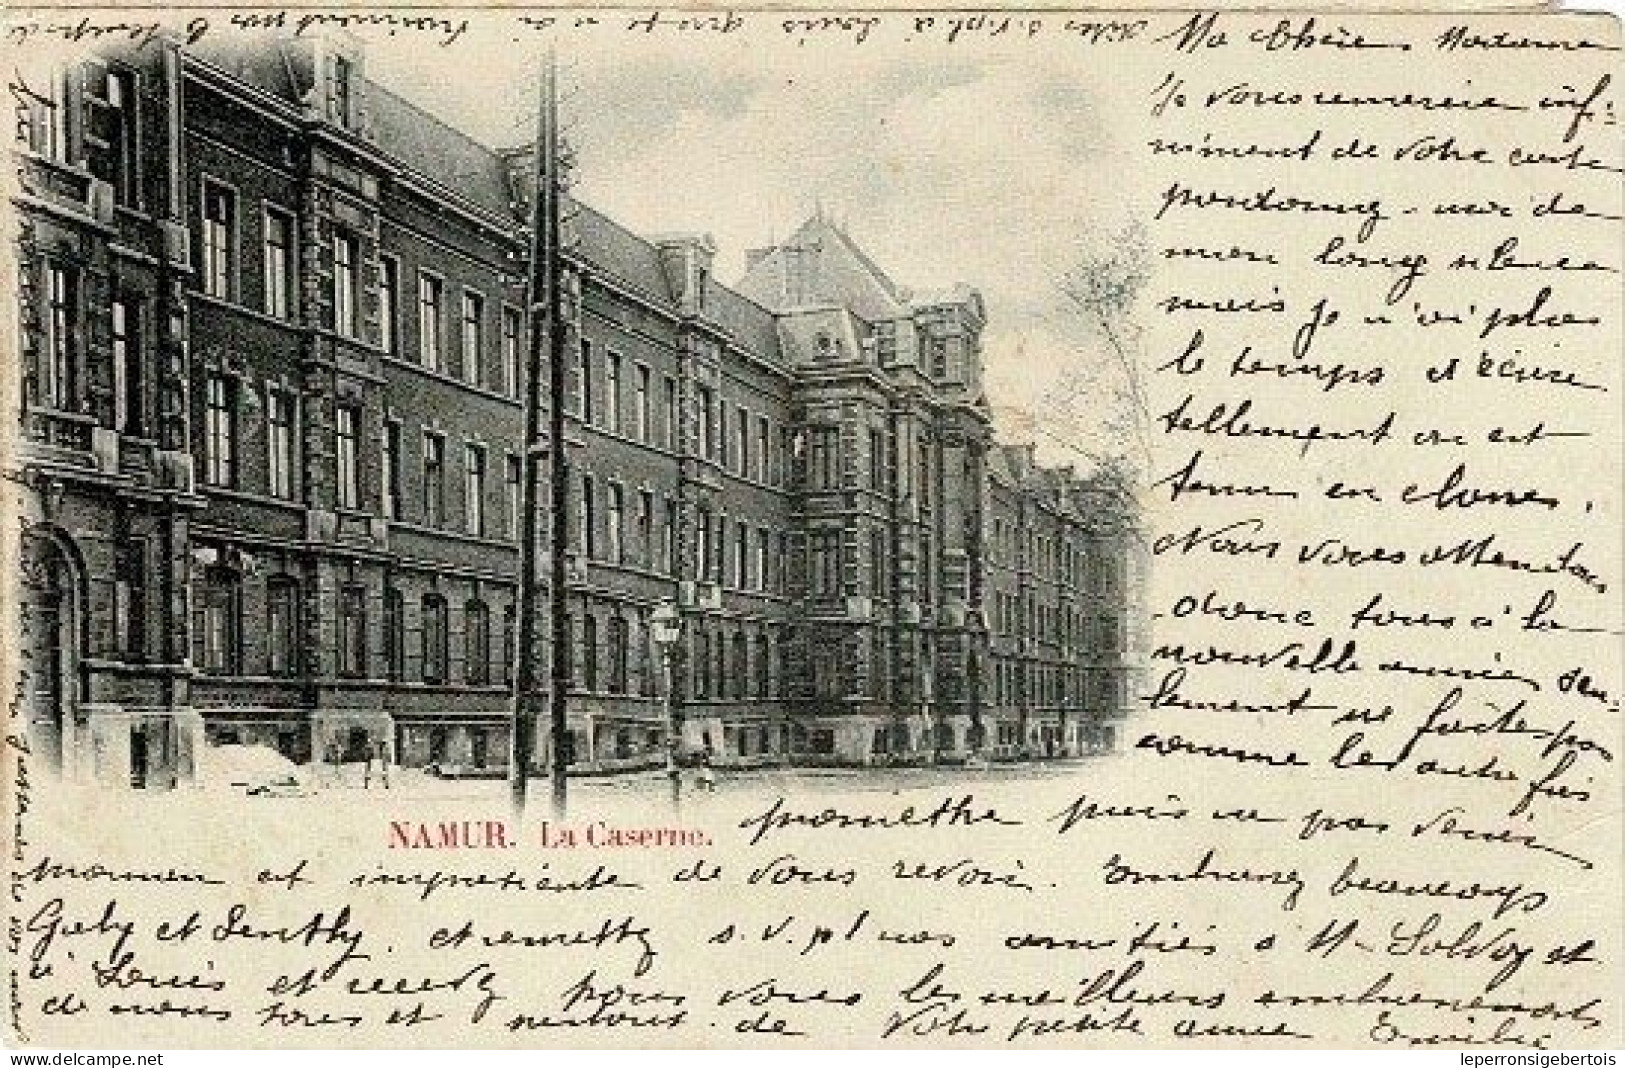 Ma Chère Madame
Je vous remercie infi-
niment de votre carte
pardonnez-moi de
mon long silence
mais je n'ai plus
le temps d'écrire
tellement on est
tenu en classe.
Nous vous attendons
donc tous à la
nouvelle année seu-
lement ne faites pas
comme les autres fois
promettre puis ne pas venir
NAMUR. La Caserne.
maman est impatiente de vous revoir. Embrassez beaucoup
Gaby et Jenthy, et remettez s.v.pl nos amitiés à M. Solvay et
à Louis et recevez pour vous les meilleurs embrassements
de nous tous et surtout de votre petite amie Emilie
dites s.v.pl à Louis que je n'ai vraiment pas le temps d
leperronsigebertois